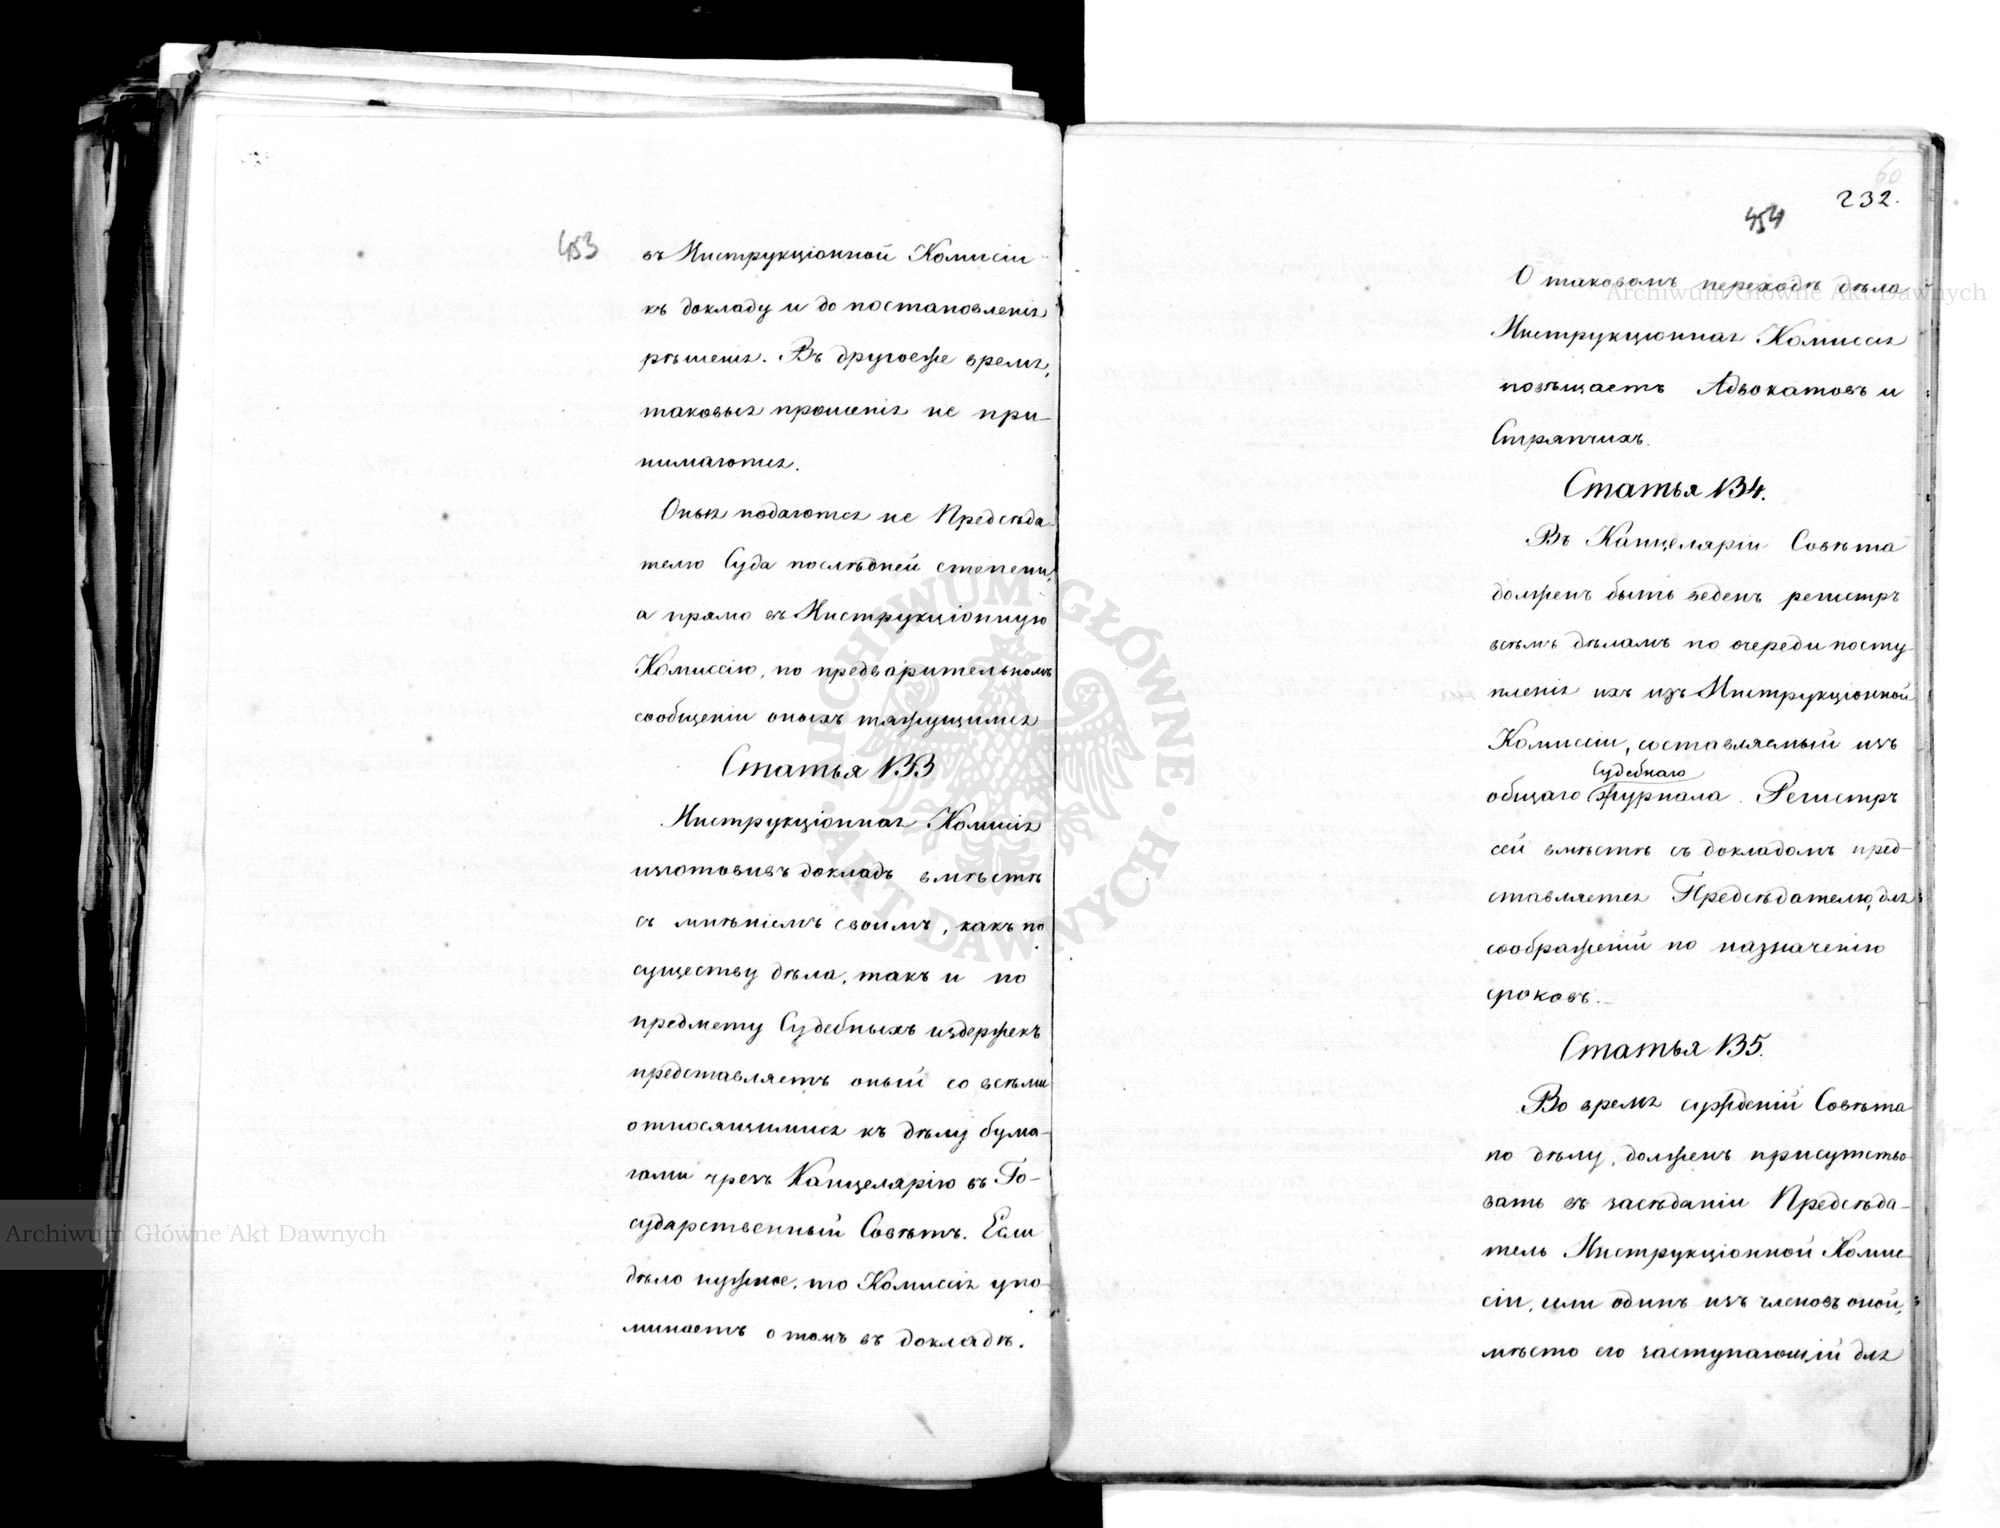 453
въ Инструкціонной Комисіи
къ докладу и до постановленія
рѣшенія. Въ другоеже время,
таковыя прошенія не при-
нимаются.
Оныя подаются не Предсѣда-
телю Суда послѣдней степени,
а прямо въ Инструкціонную
Комиссію, по предварительномъ
сообщеніи оныхъ тяжущимся
Статья 133
Инструкціонная Комисія
изготовивъ докладъ вмѣстѣ
съ мнѣніемъ своимъ, какъ по
существу дѣла, такъ и по
предмету Судебныхъ издержекъ
представляетъ оный со всѣми
относящимися къ дѣлу бума-
гами чрезъ Канцелярію въ Го-
сударственный Совѣтъ. Если
дѣло нужное, то Комиссія упо-
минаетъ о томъ въ докладѣ.
60
232.
454
О таковомъ переходѣ дѣла
Инструкціонная Комиссія
повѣщаетъ Адвокатовъ и
Стряпчихъ.
Статья 134.
Въ Канцеляріи Совѣта
долженъ быть веденъ регистръ
всѣмъ дѣламъ по очереди посту-
пленія ихъ изъ Инструкціонной
Комиссіи, составляемый изъ
Судебнаго
общаго журнала. Регистръ
сей вмѣстѣ съ докладомъ пред-
ставляется Предсѣдателю, для
соображеній по назначенію
сроковъ.
Статья 135.
Во время сужденій Совѣта
по дѣлу, долженъ присутство-
вать въ засѣданіи Предсѣда-
тель Инструкціонной Комис-
сіи, или одинъ изъ членовъ оной,
мѣсто его заступающій для
Archiwum Główne Akt Dawnych
Archiwum Główne Akt Dawnych
ARCHIWUM GŁÓWNE AKT DAWNYCH